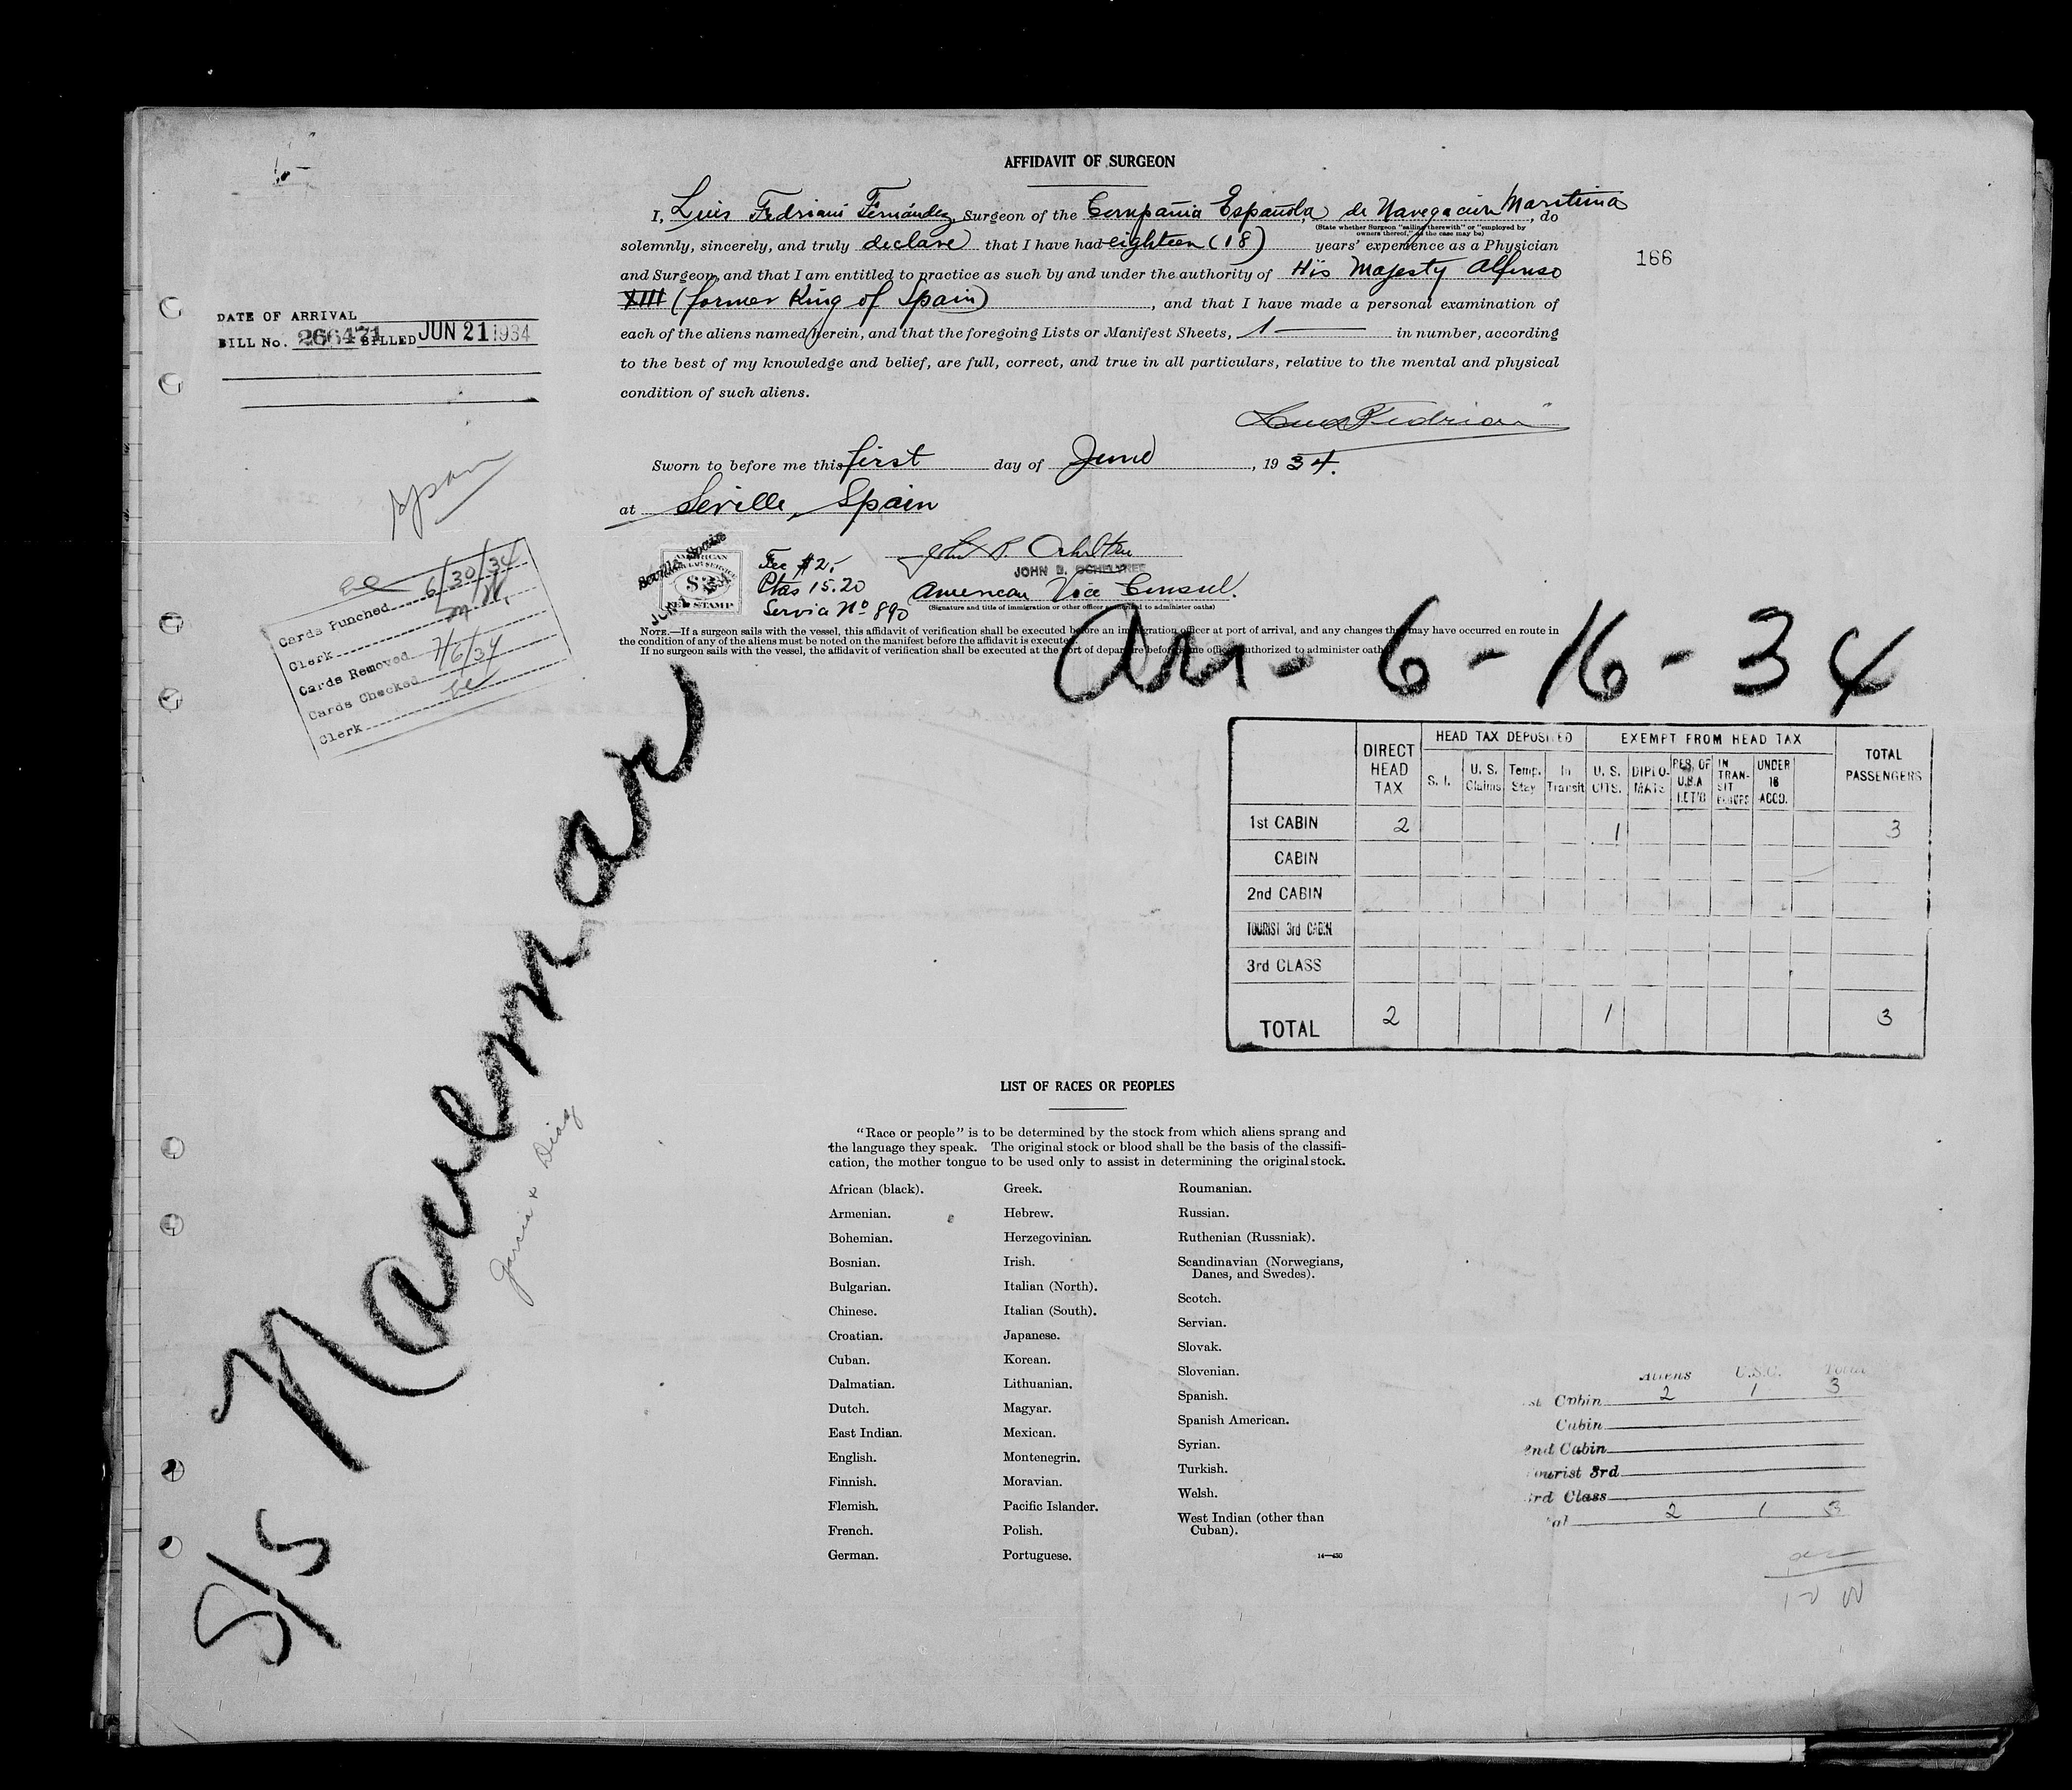 AFFIDAVIT OF SURGEON
I, Luis Fedriani Fernández, Surgeon of the Compañia Española de Navegacion Maritima, do
(State whether Surgeon "sailing therewith" or "employed by
owners thereof," as the case may be)
solemnly, sincerely, and truly declare that I have had eighteen (18) years' experience as a Physician
and Surgeon, and that I am entitled to practice as such by and under the authority of His Majesty Alfonso
XIII (former King of Spain), and that I have made a personal examination of
each of the aliens named herein, and that the foregoing Lists or Manifest Sheets, 1 in number, according
to the best of my knowledge and belief, are full, correct, and true in all particulars, relative to the mental and physical
condition of such aliens.
Luis Fedriani
Sworn to before me this first day of June, 1934.
at Seville, Spain
166
DATE OF ARRIVAL
BILL No. 266471 BILLED JUN 21 1934
Spain
Cards Punched 6/30/34
Clerk
Cards Removed 7/6/34
Cards Checked
Clerk
Seville, Spain
AMERICAN
$2
FEE STAMP
Fee $2,-
Ptas 15.20
Service Nº 890
JOHN B. OCHELTREE
American Vice Consul.
(Signature and title of immigration or other officer authorized to administer oaths)
NOTE.—If a surgeon sails with the vessel, this affidavit of verification shall be executed before an immigration officer at port of arrival, and any changes that may have occurred en route in
the condition of any of the aliens must be noted on the manifest before the affidavit is executed.
If no surgeon sails with the vessel, the affidavit of verification shall be executed at the port of departure before some officer authorized to administer oaths.
Arr - 6 - 16 - 34
DIRECT HEAD TAX
HEAD TAX DEPOSITED
EXEMPT FROM HEAD TAX
TOTAL PASSENGERS
S. I. U. S. Claims Temp. Stay In Transit U. S. CITS. DIPLOMATS RES. OF U.S.A. RET'G IN TRANSIT UNDER 16 ACCD.
1st CABIN 2 1 3
CABIN
2nd CABIN
TOURIST 3rd CABIN
3rd CLASS
TOTAL 2 1 3
S/S Navemar
Garcia & Diaz
LIST OF RACES OR PEOPLES
"Race or people" is to be determined by the stock from which aliens sprang and
the language they speak. The original stock or blood shall be the basis of the classifi-
cation, the mother tongue to be used only to assist in determining the original stock.
African (black).
Armenian.
Bohemian.
Bosnian.
Bulgarian.
Chinese.
Croatian.
Cuban.
Dalmatian.
Dutch.
East Indian.
English.
Finnish.
Flemish.
French.
German.
Greek.
Hebrew.
Herzegovinian.
Irish.
Italian (North).
Italian (South).
Japanese.
Korean.
Lithuanian.
Magyar.
Mexican.
Montenegrin.
Moravian.
Pacific Islander.
Polish.
Portuguese.
Roumanian.
Russian.
Ruthenian (Russniak).
Scandinavian (Norwegians,
Danes, and Swedes).
Scotch.
Servian.
Slovak.
Slovenian.
Spanish.
Spanish American.
Syrian.
Turkish.
Welsh.
West Indian (other than
Cuban).
14—430
Aliens U.S.C. Total
st Cabin 2 1 3
Cabin
2nd Cabin
ourist 3rd
3rd Class
al 2 1 3